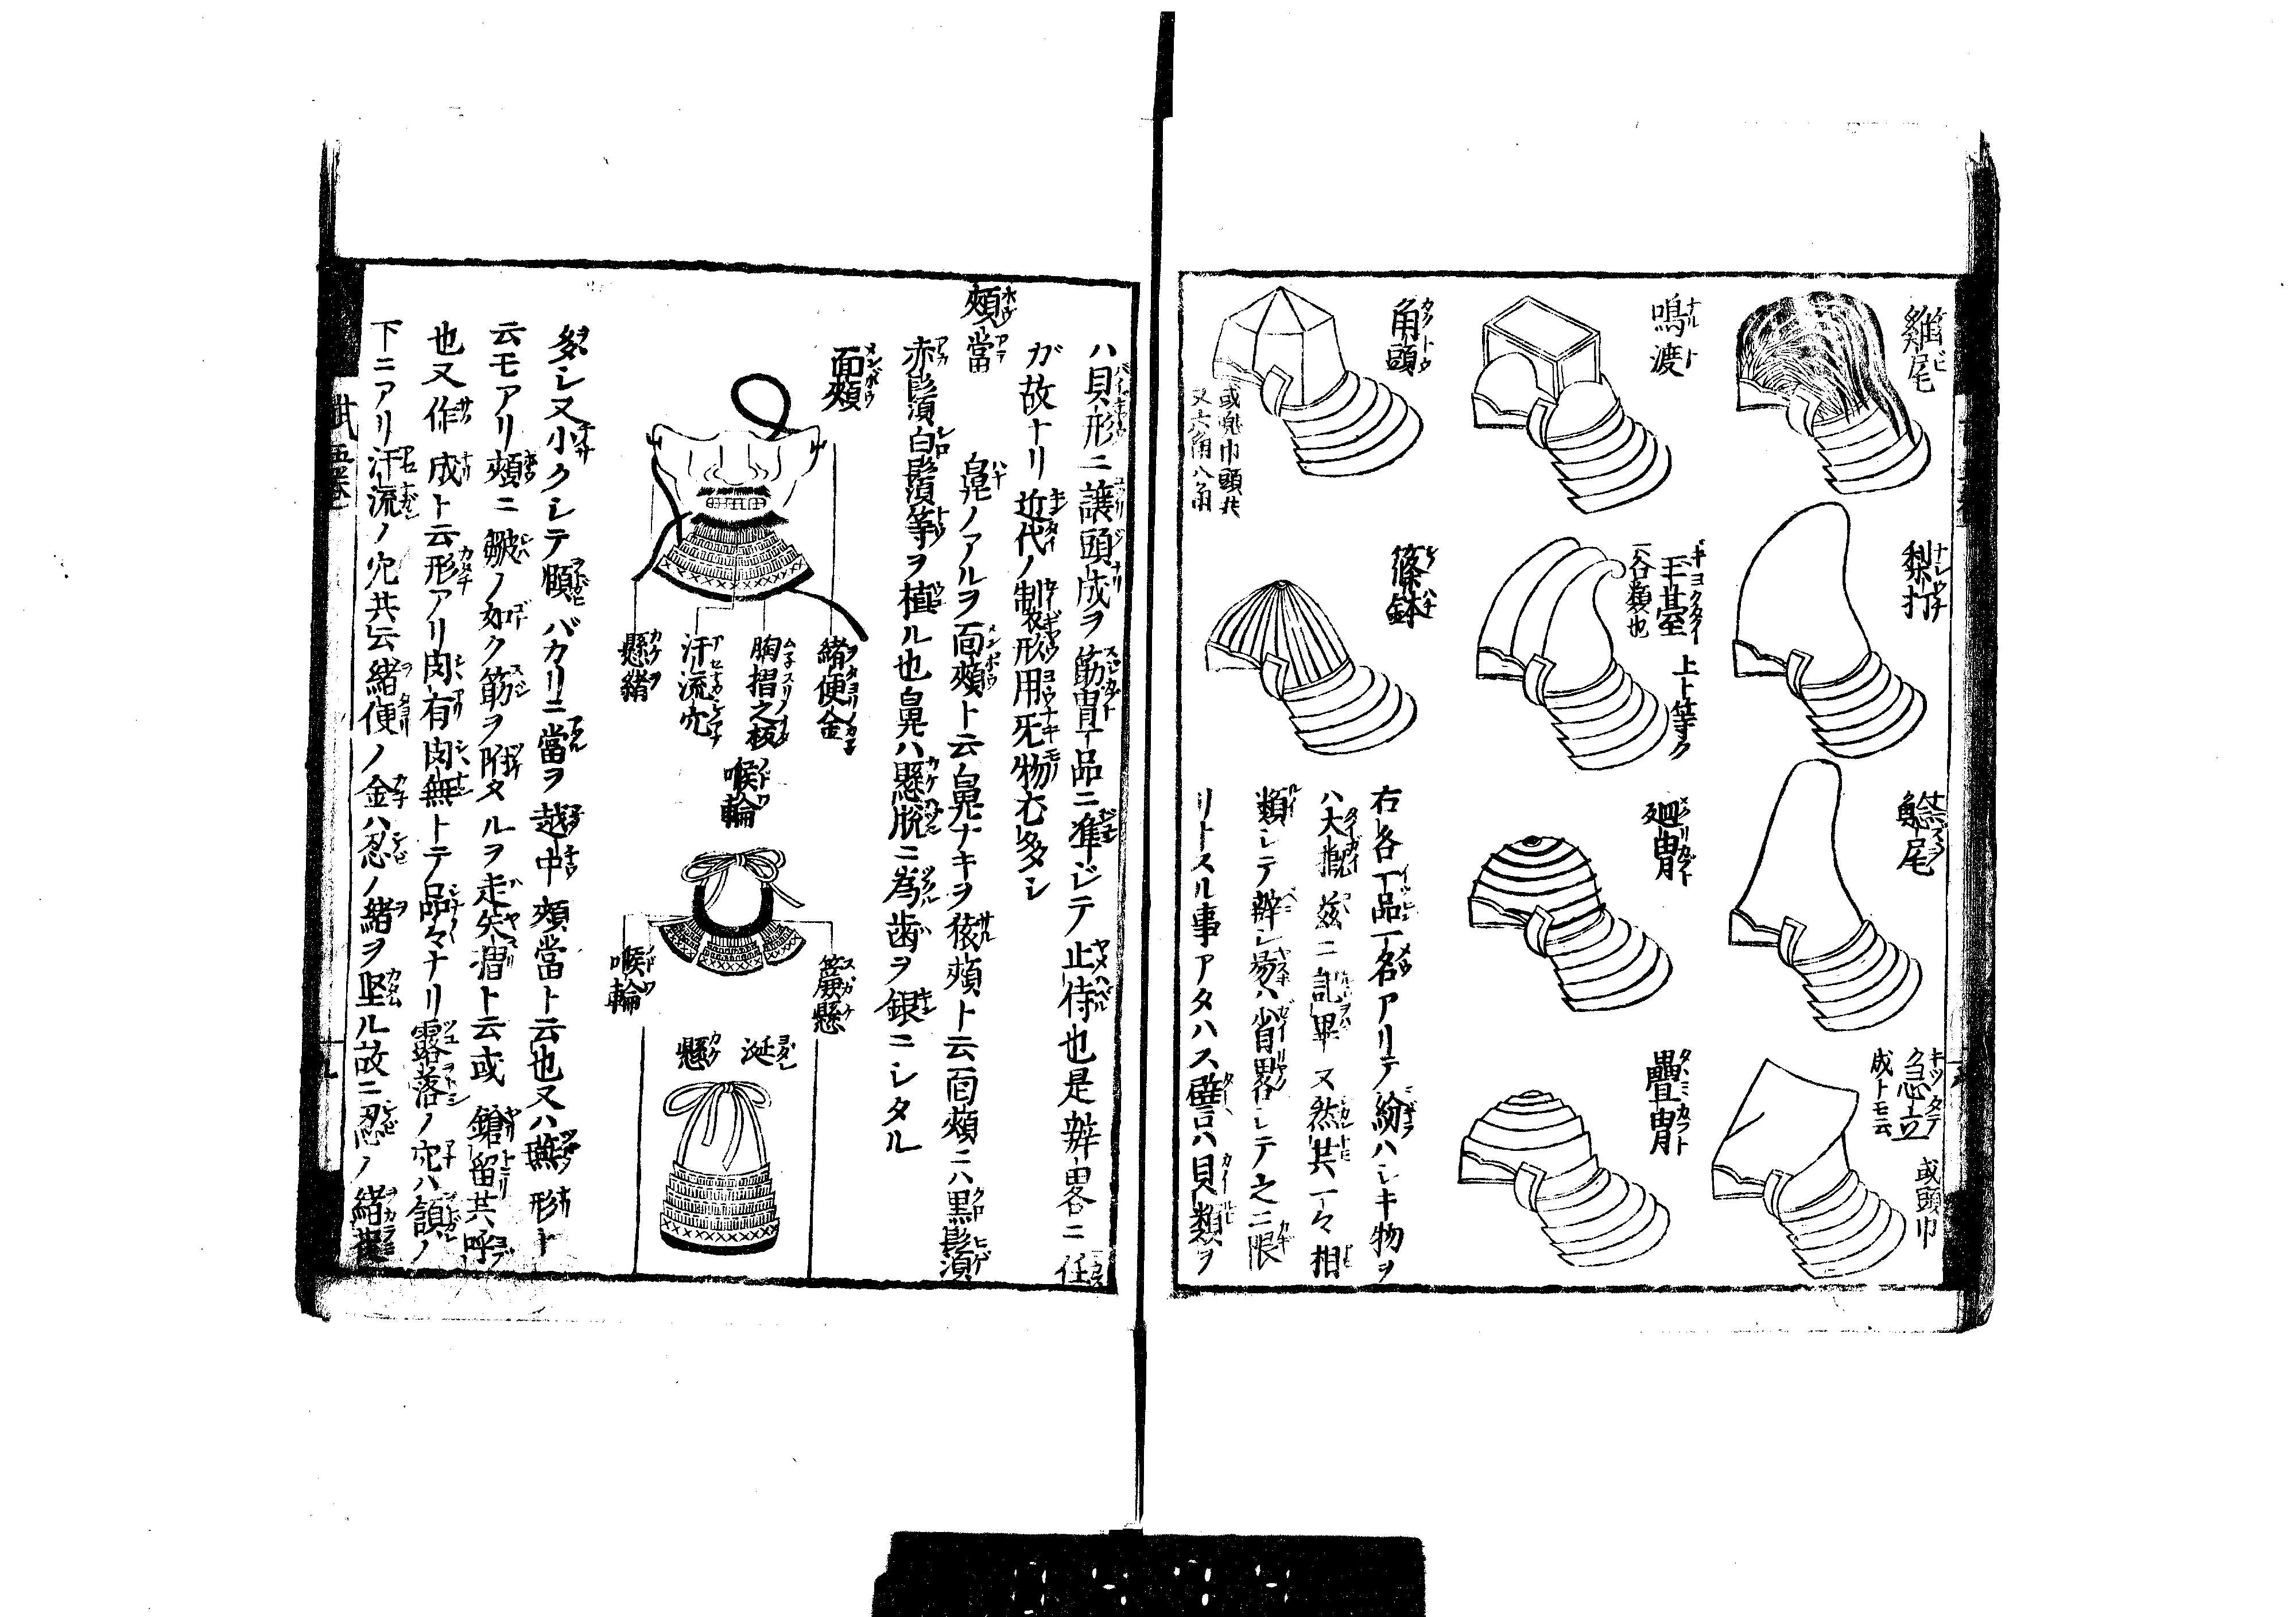 雞尾
梨打
鯰尾
急立 或頭巾
成トモ云
鳴渡
玉䑓 上ト等ク
一谷類也
廻冑
疊冑
角頭
或兜巾頭共
又六角八角
篠鉢
右各一品一名アリテ紛ハシキ物ヲ
ハ大概茲ニ記畢又然共一々相
類シテ辨シ易ハ省畧シテ之ニ限
リトスル事アタハス譬ハ貝類ヲ
ハ貝形ニ譲頭成ヲ筋冑一品ニ准ジテ止侍也是辨畧ニ任
ガ故ナリ近代ノ制製形用无物尤多シ
頰當 鼻ノアルヲ面頰ト云鼻ナキヲ猿頰ト云面頰ニハ黒髭
赤髭白髭等ヲ植ル也鼻ハ懸脱ニ為歯ヲ銀ニシタル
面頰
緒便金
胸摺之板
汗流穴
懸緒
喉輪
簾懸
喉輪
涎懸
多シ又小クシテ頤バカリニ當ヲ越中頰當ト云也又ハ燕形ト
云モアリ頰ニ皺ノ如ク筋ヲ附タルヲ走矢溜ト云或鎗留共呼
也又作成ト云形アリ肉有肉無トテ品々ナリ露落ノ穴ハ頷ノ
下ニアリ汗流ノ穴共云緒便ノ金ハ忍ノ緒ヲ堅ル故ニ忍ノ緒
武 五巻